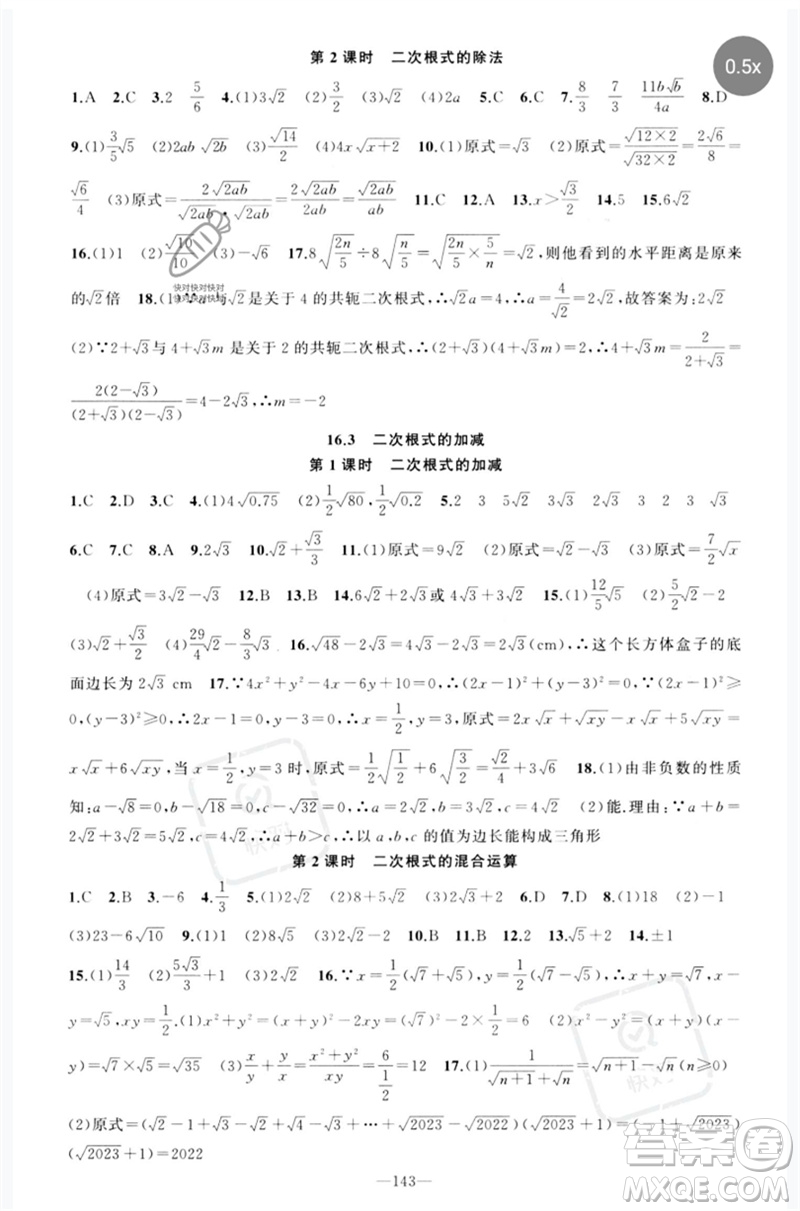 0.5x
第 2 课时　二次根式的除法
1.A　2.C　3.2　5/6　4.(1)3√2　(2)3/2　(3)√2　(4)2a　5.C　6.C　7.8/3　7/3　11b√b/4a　8.D
9.(1)3/5√5　(2)2ab√2b　(3)√14/2　(4)4x√(x+2)　10.(1)原式=√3　(2)原式=√(12×2)/√(32×2)=2√6/8=
√6/4　(3)原式=2√2ab/(√2ab·√2ab)=2√2ab/2ab=√2ab/ab　11.C　12.A　13.x>√3/2　14.5　15.6√2
16.(1)1　(2)√10/10　(3)-√6　17.8√(2n/5)÷8√(n/5)=√(2n/5×5/n)=√2,则他看到的水平距离是原来
快对快对快对
快对快对快对
的√2倍　18.(1)∵a与√2是关于 4 的共轭二次根式,∴√2a=4,∴a=4/√2=2√2,故答案为:2√2
(2)∵2+√3与4+√3m是关于 2 的共轭二次根式,∴(2+√3)(4+√3m)=2,∴4+√3m=2/(2+√3)=
2(2-√3)/((2+√3)(2-√3))=4-2√3,∴m=-2
16.3　二次根式的加减
第 1 课时　二次根式的加减
1.C　2.D　3.C　4.(1)4√0.75　(2)1/2√80,1/2√0.2　5.2　3　5√2　3√3　3√3　2　3　√3
6.C　7.C　8.A　9.2√3　10.√2+√3/3　11.(1)原式=9√2　(2)原式=6√3　(3)原式=7/2√x
(4)原式=3√2-√3　12.B　13.B　14.6√2+2√3或4√3+3√2　15.(1)12/5√5　(2)5/2√2-2
(3)√2+√3/2　(4)29/4√2-8/3√3　16.√48-2√3=4√3-2√3=2√3(cm),∴这个长方体盒子的底
面边长为2√3 cm　17.∵4x²+y²-4x-6y+10=0,∴(2x-1)²+(y-3)²=0,∵(2x-1)²
≥0,(y-3)²≥0,∴2x-1=0,y-3=0,∴x=1/2,y=3,原式=2x√x+√xy-x√x+5√xy=
x√x+6√xy,当x=1/2,y=3时,原式=1/2√(1/2)+6√(3/2)=√2/4+3√6　18.(1)由非负数的性质
知:a-√8=0,b-√18=0,c-√32=0,∴a=2√2,b=3√2,c=4√2　(2)能,理由:∵a+b=
2√2+3√2=5√2>4√2,∴a+b>c,∴以 a,b,c 的值为边长能构成三角形
第 2 课时　二次根式的混合运算
1.C　2.B　3.-6　4.1/3　5.(1)2√2　(2)10　(3)2√3+2√2　6.D　7.D　8.(1)18　(2)-1
(3)23-6√10　9.(1)1　(2)8√2　(3)2√2　10.B　11.B　12.2　13.√5+2　14.±1
15.(1)14/3　(2)5√3/3+1　16.∵x=1/2(√7+√5),y=1/2(√7-√5),∴x+y=√7,x-
y=√5,xy=1/2.(1)x²+y²=(x+y)²-2xy=(√7)²-2×1/2=6　(2)x²-y²=(x+y)(x-
y)=√7×√5=√35　(3)x/y+y/x=(x²+y²)/xy=6/(1/2)=12　17.(1)1/(√(n+1)+√n)=√(n+1)-√n(n≥0)
(2)原式=(√2-1+√3-√2+√4-√3+…+√2023-√2022)(√2023+1)=(-1+√2023)
(√2023+1)=2022
—143—
答案圈
MXQE.COM